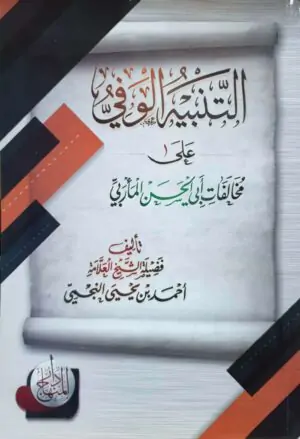 التنبيه الوفي
على
مخالفات أبي الحسن المأربي
تأليف
فضيلة الشيخ العلامة
أحمد بن يحيى النجمي
دار المنهاج